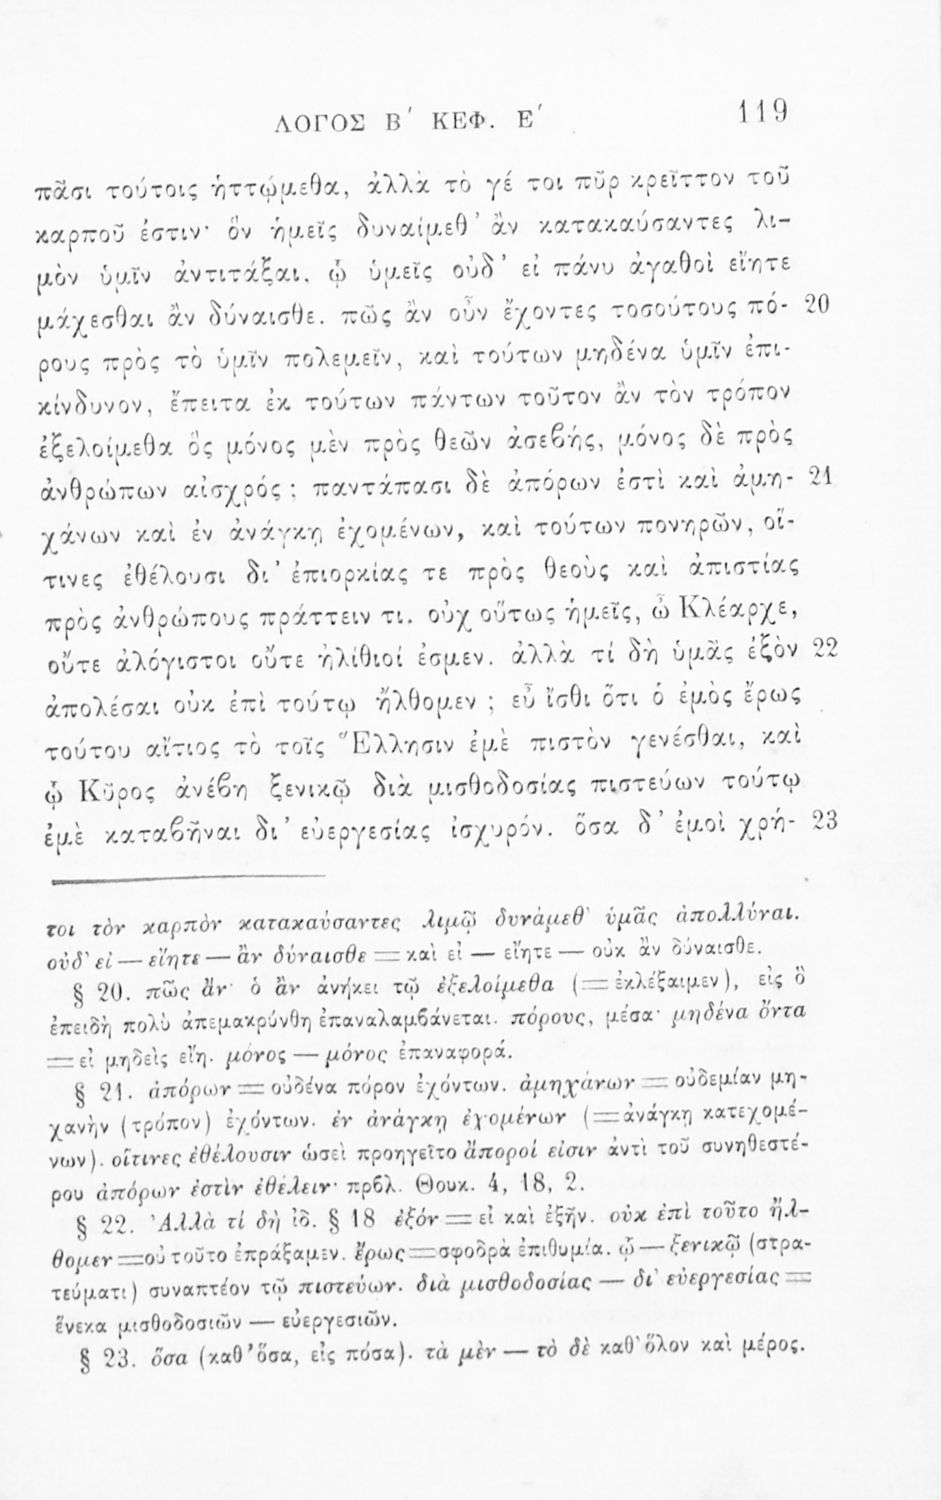 ΛΟΓΟΣ Β΄ ΚΕΦ. Ε΄ 119
πᾶσι τούτοις ἡττῴμεθα, ἀλλὰ τὸ γέ τοι πῦρ κρεῖττον τοῦ
καρποῦ ἐστιν· ὃν ἡμεῖς δυναίμεθ’ ἂν κατακαύσαντες λι-
μὸν ὑμῖν ἀντιτάξαι, ᾧ ὑμεῖς οὐδ’ εἰ πάνυ ἀγαθοὶ εἴητε
μάχεσθαι ἂν δύναισθε. πῶς ἂν οὖν ἔχοντες τοσούτους πό- 20
ρους πρὸς τὸ ὑμῖν πολεμεῖν, καὶ τούτων μηδένα ὑμῖν ἐπι-
κίνδυνον, ἔπειτα ἐκ τούτων πάντων τοῦτον ἂν τὸν τρόπον
ἐξελοίμεθα ὃς μόνος μὲν πρὸς θεῶν ἀσεβής, μόνος δὲ πρὸς
ἀνθρώπων αἰσχρός ; παντάπασι δὲ ἀπόρων ἐστὶ καὶ ἀμη- 21
χάνων καὶ ἐν ἀνάγκῃ ἐχομένων, καὶ τούτων πονηρῶν, οἵ-
τινες ἐθέλουσι δι’ ἐπιορκίας τε πρὸς θεοὺς καὶ ἀπιστίας
πρὸς ἀνθρώπους πράττειν τι. οὐχ οὕτως ἡμεῖς, ὦ Κλέαρχε,
οὔτε ἀλόγιστοι οὔτε ἠλίθιοί ἐσμεν. ἀλλὰ τί δὴ ὑμᾶς ἐξὸν 22
ἀπολέσαι οὐκ ἐπὶ τούτῳ ἤλθομεν ; εὖ ἴσθι ὅτι ὁ ἐμὸς ἔρως
τούτου αἴτιος τὸ τοῖς Ἕλλησιν ἐμὲ πιστὸν γενέσθαι, καὶ
ᾧ Κῦρος ἀνέβη ξενικῷ διὰ μισθοδοσίας πιστεύων τούτῳ
ἐμὲ καταβῆναι δι’ εὐεργεσίας ἰσχυρόν. ὅσα δ’ ἐμοὶ χρή- 23
τοι τὸν καρπὸν κατακαύσαντες λιμῷ δυνάμεθ’ ὑμᾶς ἀπολλύναι.
οὐδ’ εἰ — εἴητε — ἂν δύναισθε = καὶ εἰ — εἴητε — οὐκ ἂν δύναισθε.
§ 20. πῶς ἄν· ὁ ἂν ἀνήκει τῷ ἐξελοίμεθα (= ἐκλέξαιμεν), εἰς ὃ
ἐπειδὴ πολὺ ἀπεμακρύνθη ἐπαναλαμβάνεται. πόρους, μέσα· μηδένα ὄντα
= εἰ μηδεὶς εἴη. μόνος — μόνος ἐπαναφορά.
§ 21. ἀπόρων = οὐδένα πόρον ἐχόντων. ἀμηχάνων = οὐδεμίαν μη-
χανὴν (τρόπον) ἐχόντων. ἐν ἀνάγκῃ ἐχομένων (= ἀνάγκῃ κατεχομέ-
νων). οἵτινες ἐθέλουσιν ὡσεὶ προηγεῖτο ἄποροί εἰσιν ἀντὶ τοῦ συνηθεστέ-
ρου ἀπόρων ἐστὶν ἐθέλειν· πρβλ. Θουκ. 4, 18, 2.
§ 22. Ἀλλὰ τί δὴ ἰδ. § 18 ἐξόν = εἰ καὶ ἐξῆν. οὐκ ἐπὶ τοῦτο ἤλ-
θομεν = οὐ τοῦτο ἐπράξαμεν. ἔρως = σφοδρὰ ἐπιθυμία. ᾧ — ξενικῷ (στρα-
τεύματι) συναπτέον τῷ πιστεύων. διὰ μισθοδοσίας — δι’ εὐεργεσίας =
ἕνεκα μισθοδοσιῶν — εὐεργεσιῶν.
§ 23. ὅσα (καθ’ ὅσα, εἰς πόσα). τὰ μὲν — τὸ δὲ καθ’ ὅλον καὶ μέρος.